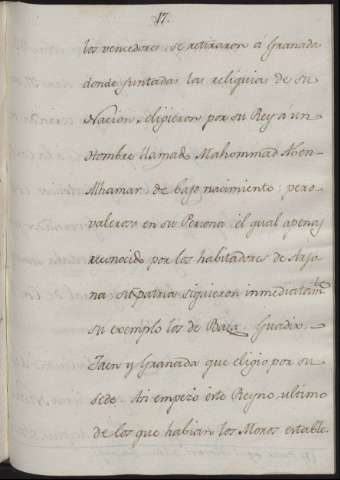 17.
los vencedores, se retiraron á Granada
donde juntadas las reliquias de su
Nacion, eligieron por su Rey á un
Hombre llamado Mahommad Aben-
Alhamar de bajo nacimiento; pero
valeroso en su Persona el qual apenas
reconocido por los habitadores de Arjo-
na su patria siguieron inmediatamte
su exemplo los de Baza, Guadix
Jaen y Granada que eligio por su
sede. Asi empezó este Reyno ultimo
de los que habian los Moros estable.